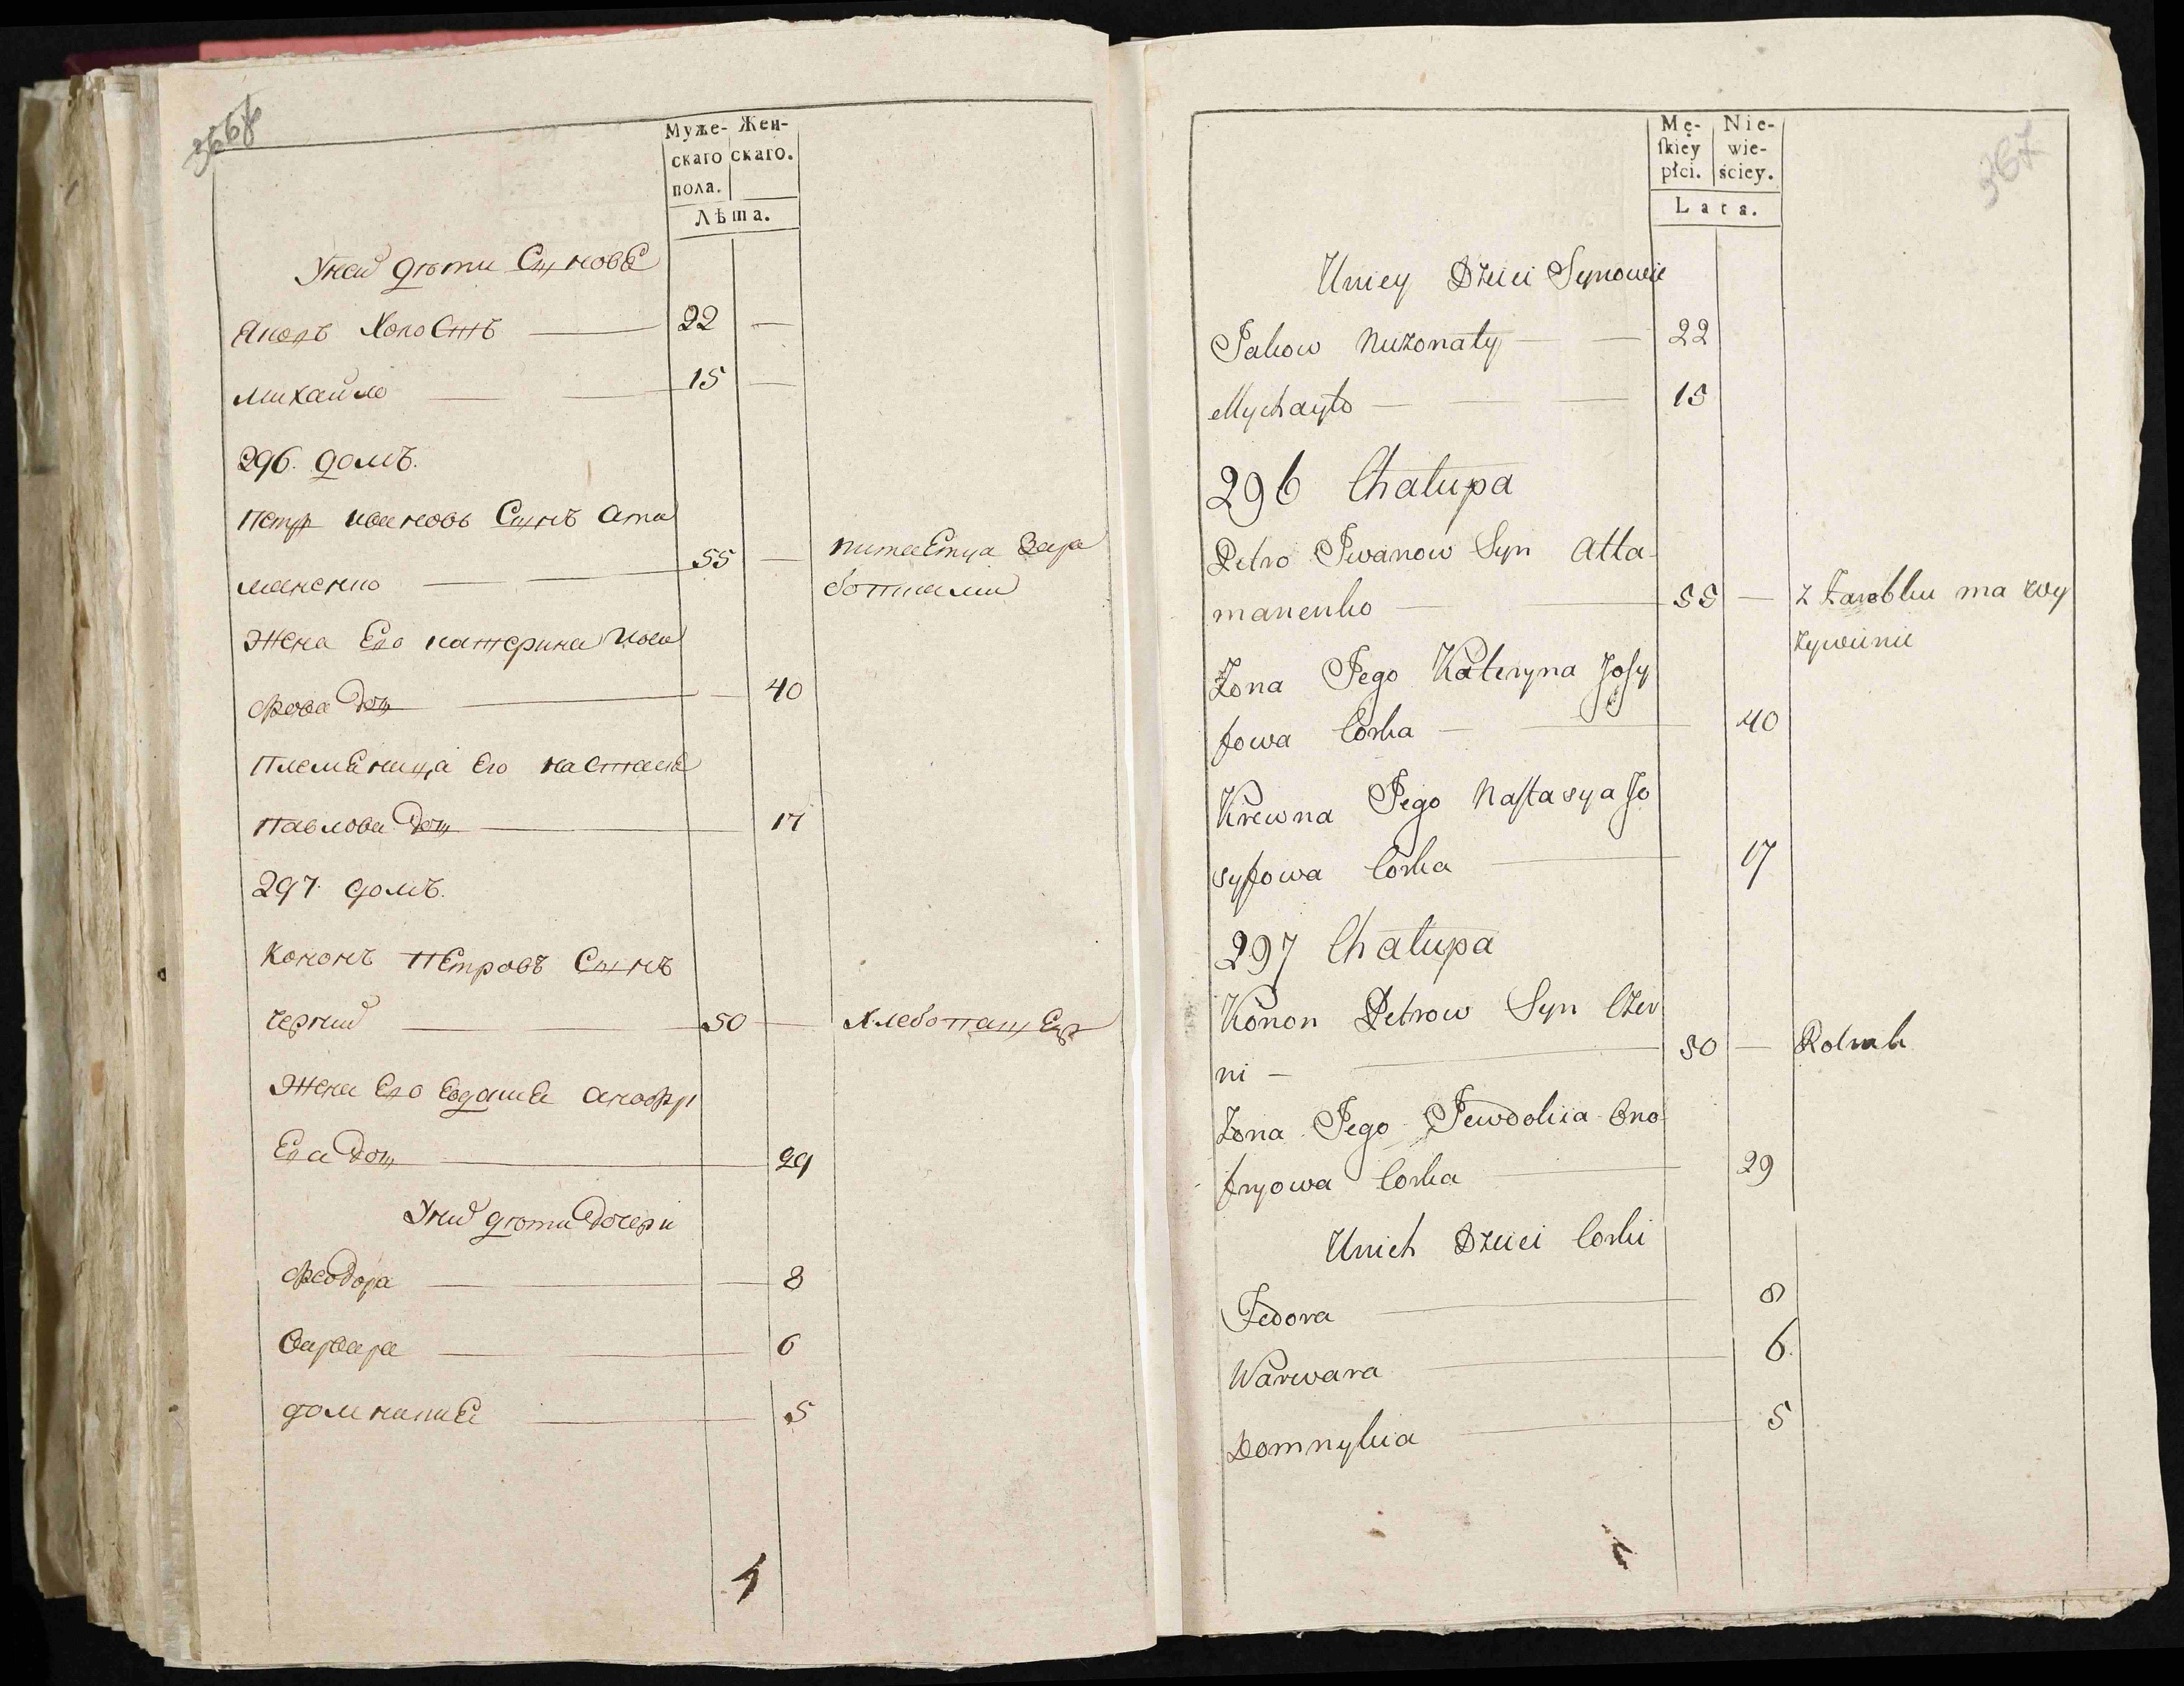 Муже- Жен-
скаго скаго.
пола.
Лѣта.
Уней дѣти Сынове
Яковъ Холостъ — 22 —
Михайло — — 15 —
296. домъ.
Петръ Ивановъ Сынъ Ата
маненко — — 55 — питаетца Зара
ботками
Жена Его Катерина Иоси
фова Доч — — 40
Племеница Его Настасия
Павлова Доч — 17
297. домъ.
Кононъ Петровъ Сынъ
Черний — 50 — Хлебопашец
Жена Его Евдокия Анофри
Ева Доч — 29
Уних дѣти Дочери
Феодора — — 8
Варвара — 6
Домникия — 5
367
Mę- Nie-
ſkiey wie-
płci. ściey.
Lata.
Uniey Dzieci Synowie
Jakow Niezonaty — — 22
Mychayło — — — 15
296 Chałupa
Petro Iwanow Syn Atta-
manenko — — 55 — z Zarobku ma wy
żywienie
Zona Jego Kateryna Josy
fowa Corka — — 40
Krewna Jego Naſtasya Jo
syfowa Corka — 17
297 Chałupa
Konon Petrow Syn Czer
ni — — 50 — Rolnik
Zona Jego Jewdokiia Ono-
fryowa Corka — 29
Unich Dzieci Corki
Fedora — 8
Warwara — 6.
Domnykia — 5